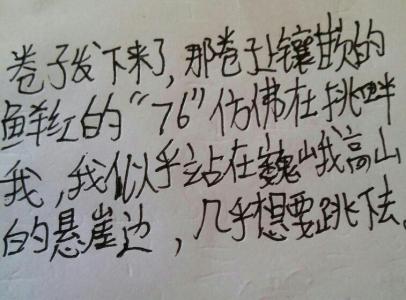 卷子发下来了，那卷子上镶嵌的
鲜红的“76”仿佛在挑衅
我，我似乎站在巍峨高山
的悬崖边，几乎想要跳下去。